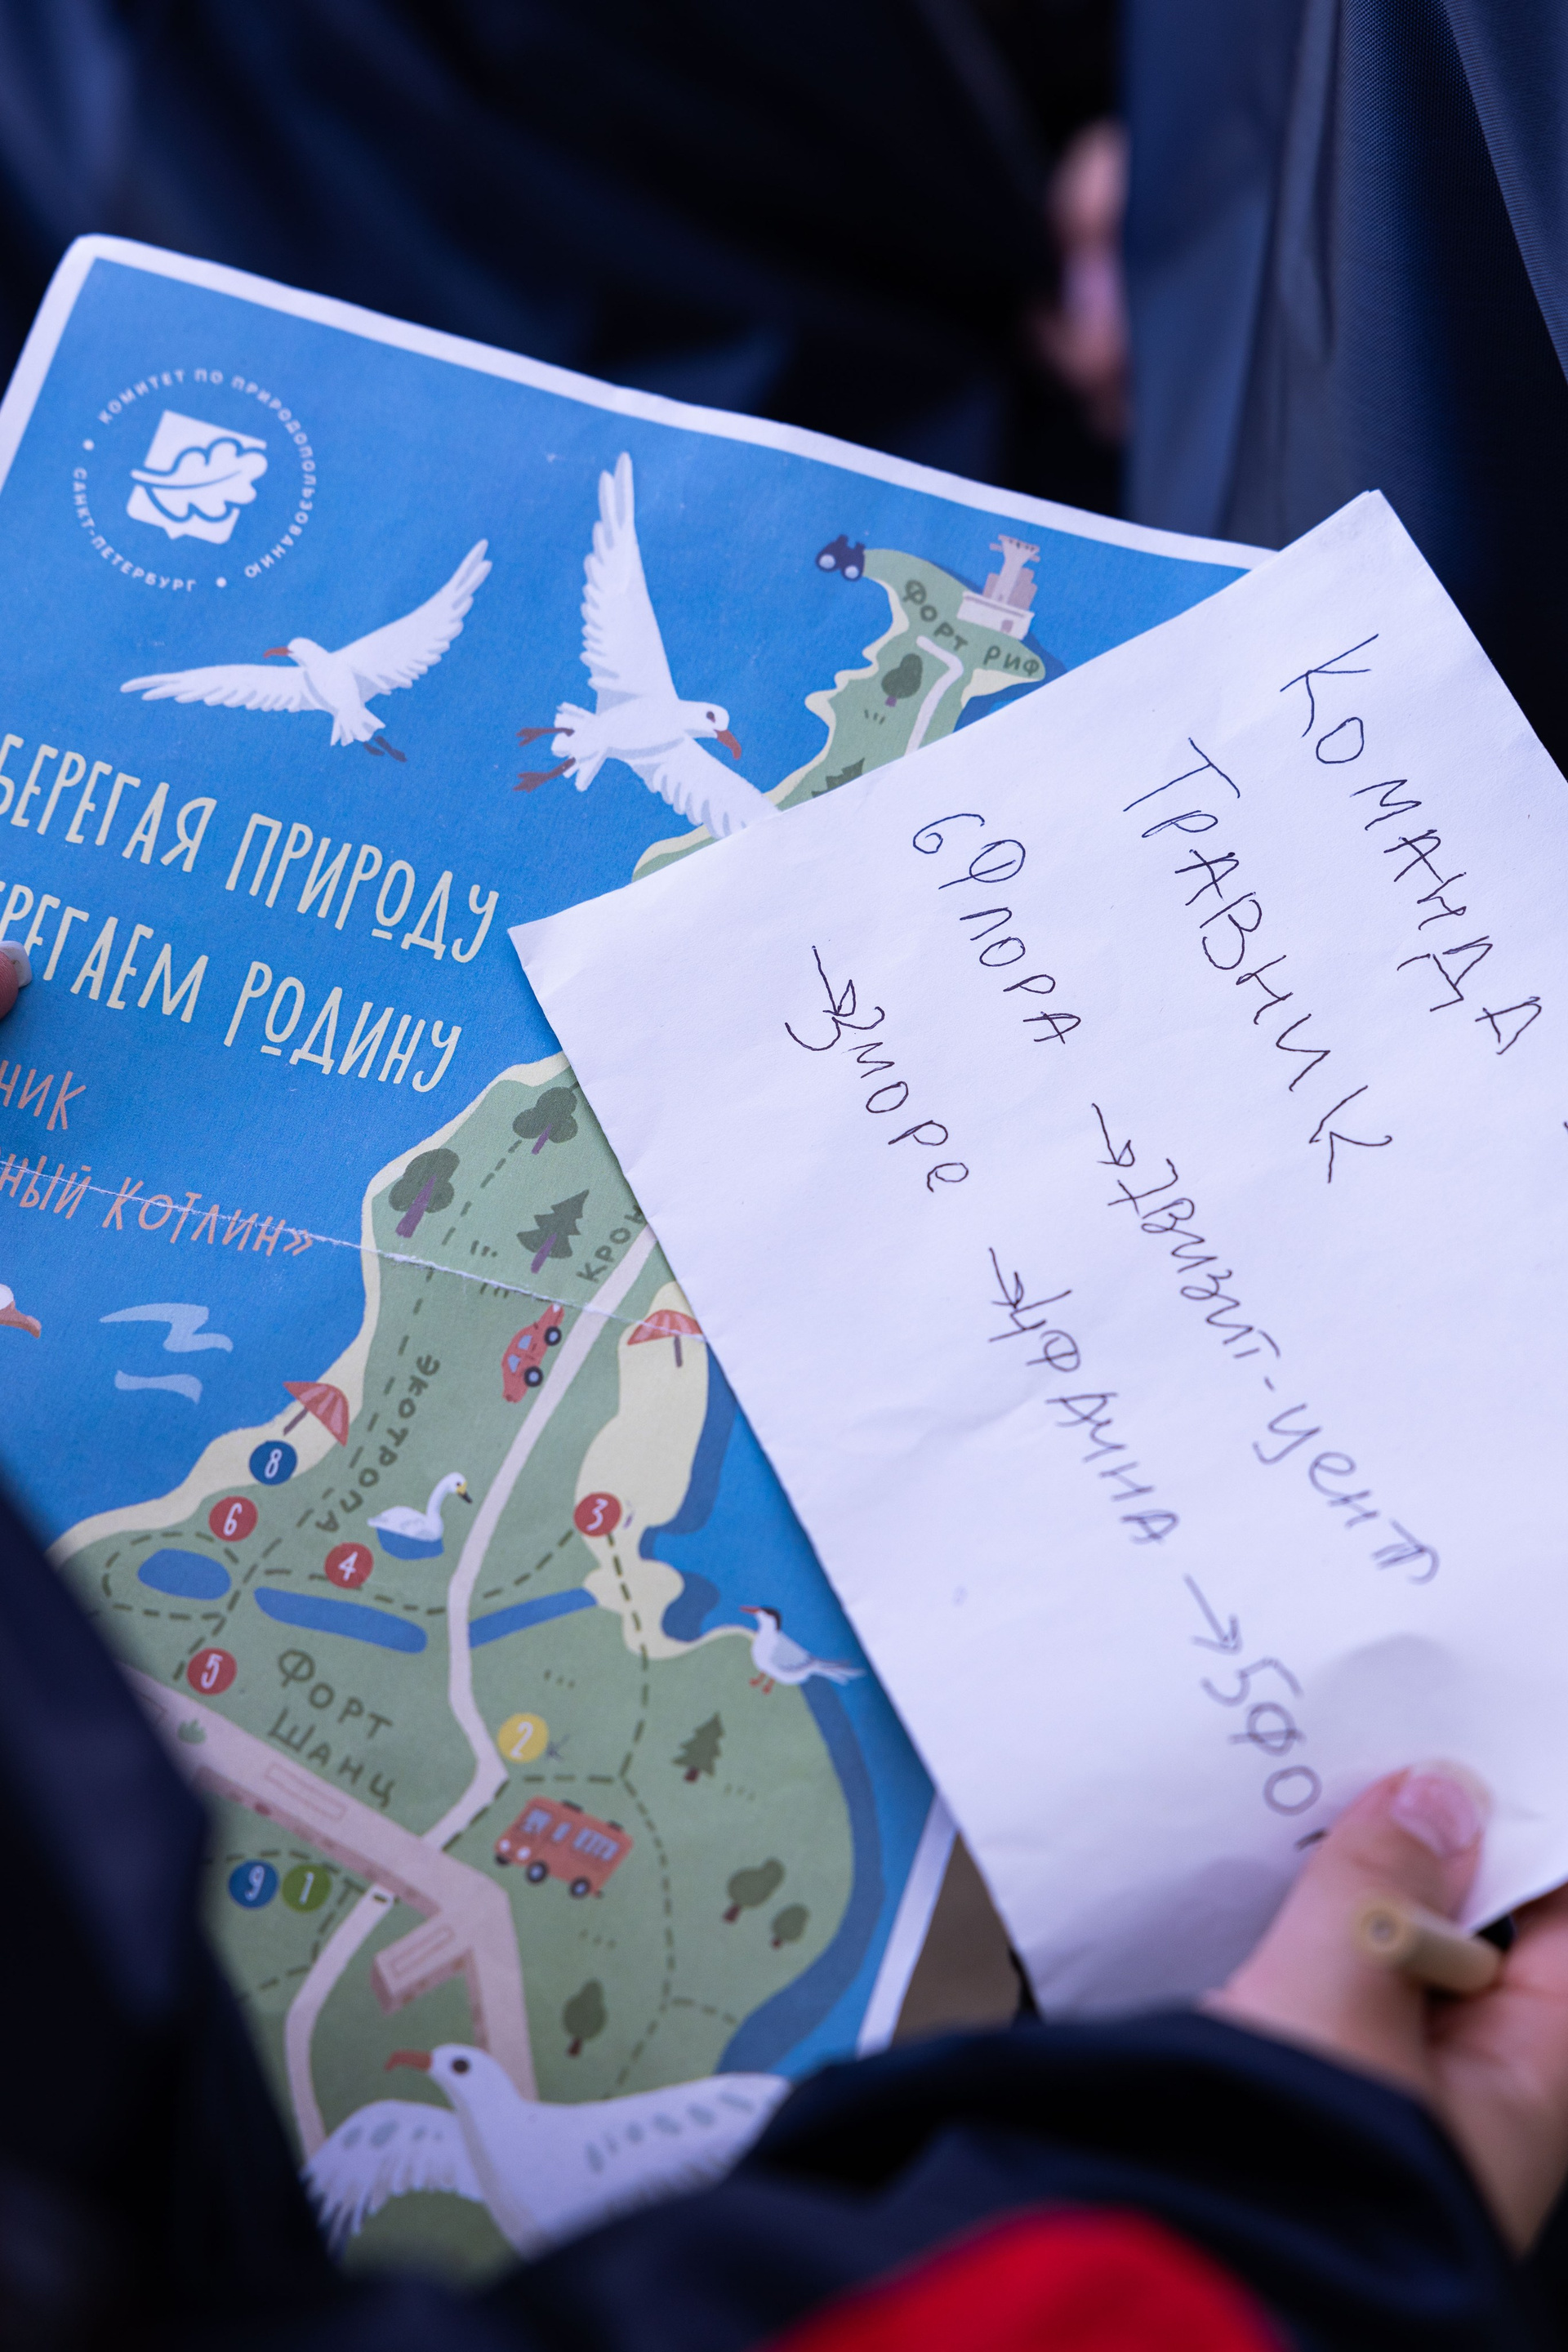 КОМИТЕТ ПО ПРИРОДОПОЛЬЗОВАНИЮ
САНКТ-ПЕТЕРБУРГ
БЕРЕГАЯ ПРИРОДУ
ЕРЕГАЕМ РОДИНУ
НИК
НЫЙ КОТЛИН»
ФОРТ РИФ
КРОН
ЭКОТРОПА
8
6
4
3
5
ФОРТ
ШАНЦ
2
9
1
КОМАНДА
ТРАВНИК
6 ФЛОРА → 7 ВИЗИТ-ЦЕНТР
→ 3 МОРЕ → 4 ФАУНА → 5 ФО